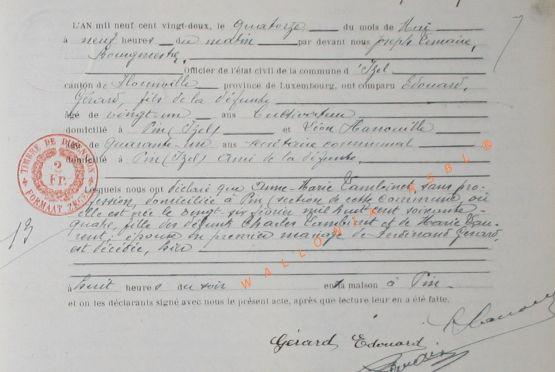 L'AN mil neuf cent vingt-deux, le quatorze du mois de Mai
à neuf heures du matin par devant nous Joseph Lemaire,
Bourgmestre,
Officier de l'état civil de la commune d'Izel
canton de Florenville province de Luxembourg, ont comparu Edouard
Gérard, fils de la défunte
âgé de vingt-un ans cultivateur
domicilié à Pin (Izel) et Léon Hanouille
de quarante-un ans secrétaire communal
domicilié à Pin (Izel) ami de la défunte
Lesquels nous ont déclaré que Anne-Marie Lambinet sans pro-
fession, domiciliée à Pin (section de cette commune) où
elle est née le vingt six février mil huit cent soixante-
quatre, fille des défunts Charles Lambinet et de Marie Lau-
rent, épouse en premier mariage de Ferdinand Gérard,
est décédée, hier
à huit heures du soir en sa maison à Pin
et ont les déclarants signé avec nous le présent acte, après que lecture leur en a été faite.
Gérard Edouard
13
TIMBRE DE DIMENSION
2
Fr.
FORMAAT ZEGEL
WALLONIA ASBL ©